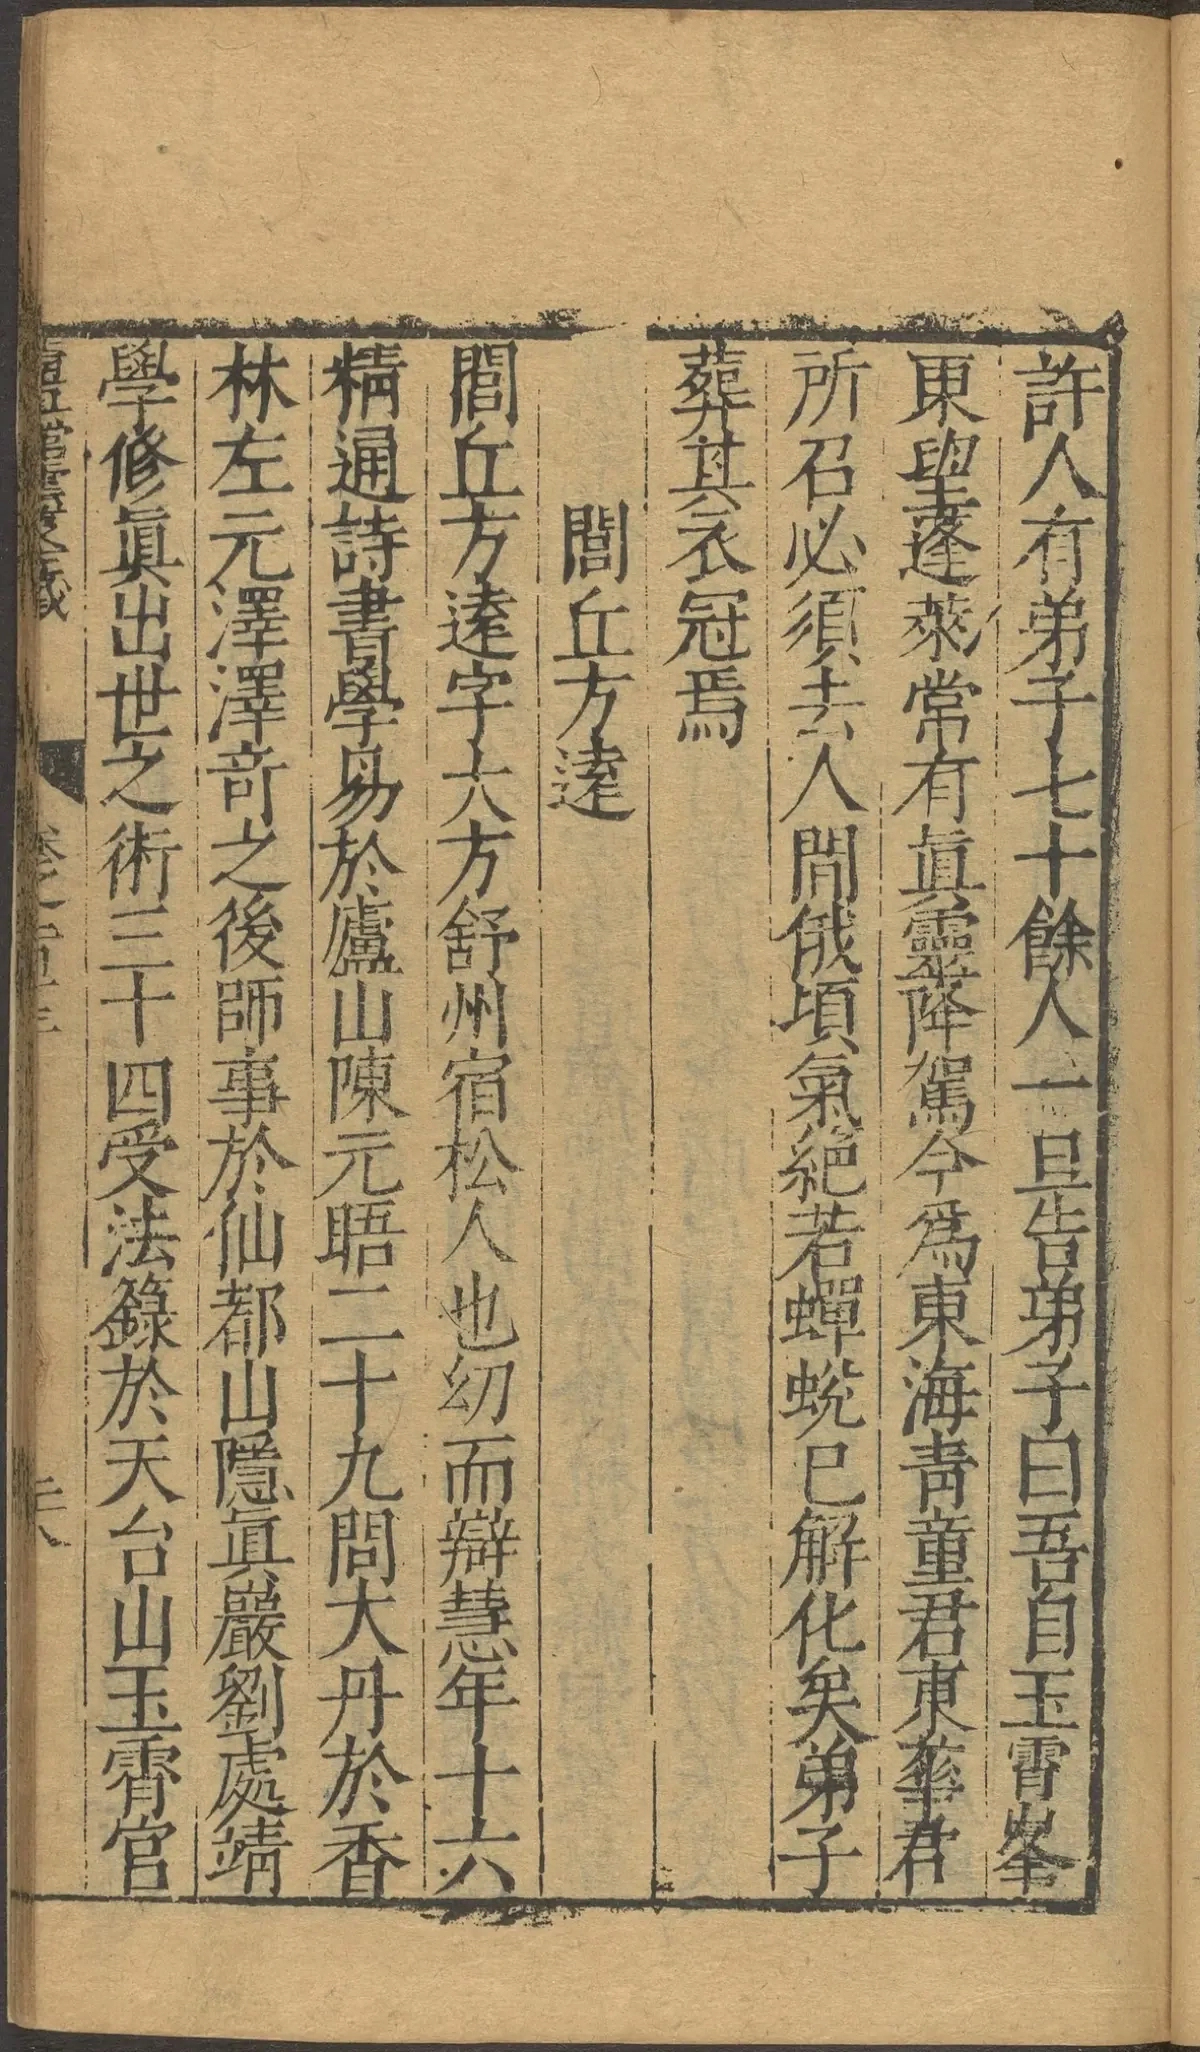 許人有弟子七十餘人一旦告弟子曰吾自玉霄峯
東望蓬萊常有眞靈降駕今爲東海靑童君東華君
所召必須去人間俄頃氣絕若蟬蛻已解化矣弟子
葬其衣冠焉
閭丘方遠
閭丘方遠字大方舒州宿松人也幼而辯慧年十六
精通詩書學易於廬山陳元晤二十九問大丹於香
林左元澤澤奇之後師事於仙都山隱眞巖劉處靖
學修眞出世之術三十四受法籙於天台山玉霄宫
卷之一百十三
二八